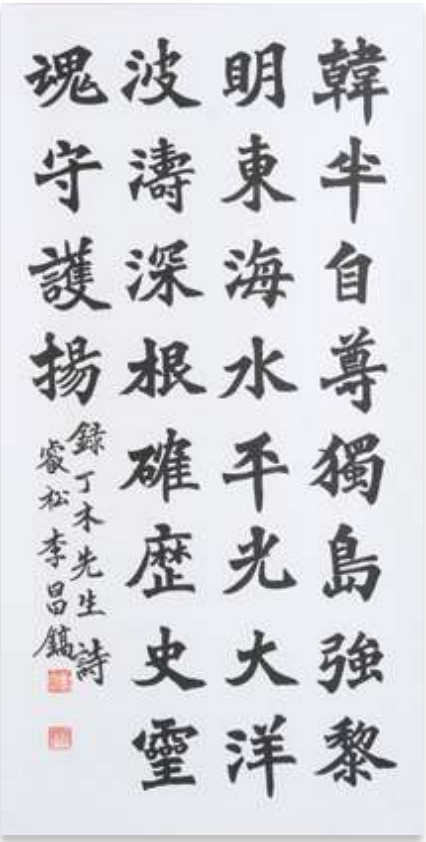 韓半自尊獨島強黎
明東海水平光大洋
波濤深根確歷史靈
魂守護揚
錄丁木先生詩
睿松李昌鎬